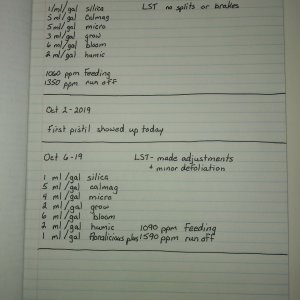 1 ml/gal silica LST no splits or brakes
5 ml/gal calmag
5 ml/gal micro
3 ml/gal grow
6 ml/gal bloom
2 ml/gal humic
1060 ppm feeding
1350 ppm run off
Oct 2-2019
first pistil showed up today
Oct 6-19 LST- made adjustments
+ minor defoliation
1 ml/gal silica
5 ml/gal calmag
4 ml/gal micro
2 ml/gal grow
6 ml/gal bloom
2 ml/gal humic 1090 ppm feeding
1 ml/gal floralicious plus 1590 ppm run off